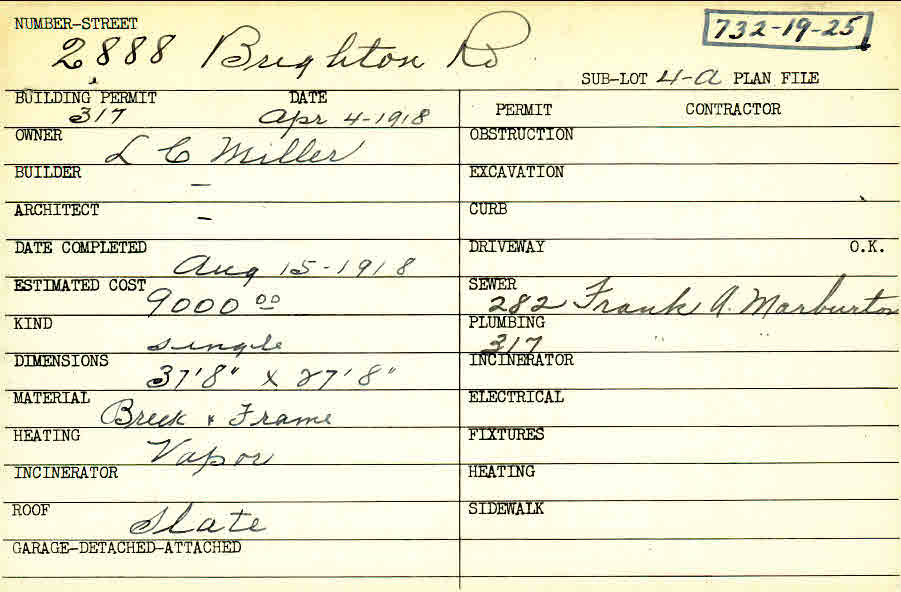 NUMBER-STREET
732-19-25
2888 Brighton Rd
SUB-LOT 4-a PLAN FILE
BUILDING PERMIT DATE
317 Apr 4-1918
PERMIT CONTRACTOR
OWNER L C Miller
OBSTRUCTION
BUILDER –
EXCAVATION
ARCHITECT –
CURB
DATE COMPLETED Aug 15-1918
DRIVEWAY O.K.
ESTIMATED COST 9000 00
SEWER
282 Frank A. Marburton
KIND single
PLUMBING
317 " "
DIMENSIONS 37'8" x 27'8"
INCINERATOR
MATERIAL Brick & Frame
ELECTRICAL
HEATING Vapor
FIXTURES
INCINERATOR
HEATING
ROOF Slate
SIDEWALK
GARAGE-DETACHED-ATTACHED